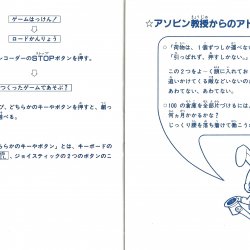 ゲームはっけん！
ロードかんりょう
コーダーのSTOPボタンを押す。
ストップ
つくったゲームであそぶ？
プ、どちらかのキーやボタンを押すと、最っ
る。
らかのキーやボタン」とは、キーボードの
、ジョイスティックの2つのボタンのこ
☆アソビン教授からのアド
きょうじゅ
○「荷物は、1個ずつしか運べない
「引っぱれず、押すしかない。」
この2つをよーく頭に入れてお
違いかけてくる敵などいないの
あわてない、あわてない。
○100の倉庫を全部片づけるには、
何ヵ月かかるかな？
じっくり腰を落ち着けて働こう